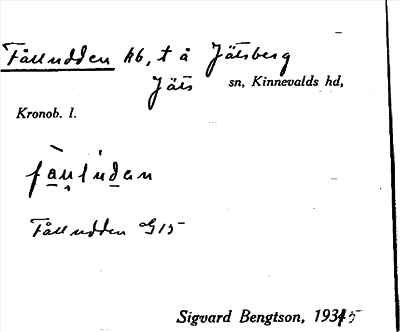 Fålludden hb, t å Jätsberg
Jäts sn, Kinnevalds hd,
Kronob. l.
Fålludden G15
Sigvard Bengtson, 1935